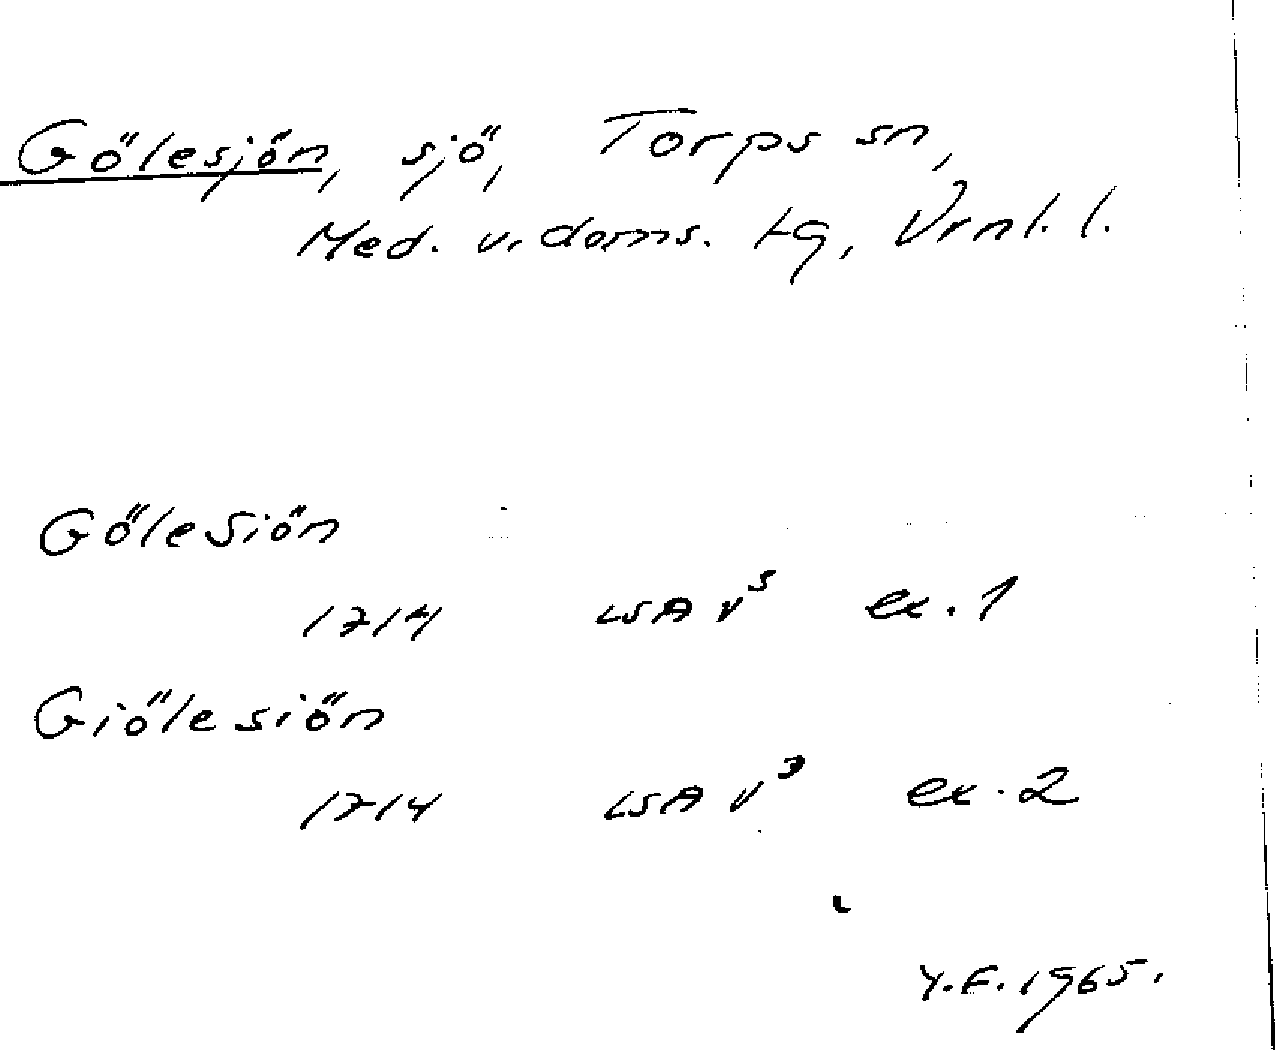 Gölesjön, sjö, Torps sn,
Med. v. doms. tg, Vrnl. l.
Gölesiön
1714 LSA V⁵ ex. 1
Giölesiön
1714 LSA V³ ex. 2
Y.F. 1965.